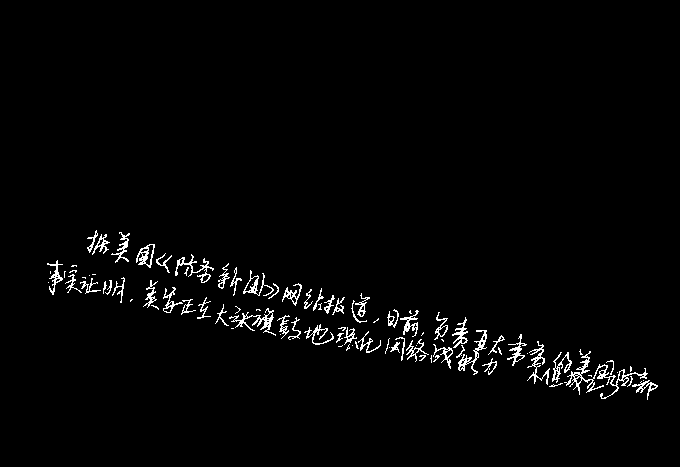 据美国《防务新闻》网站报道,目前,负责亚太事务的美国防部
事实证明,美军正在大张旗鼓地强化网络战能力